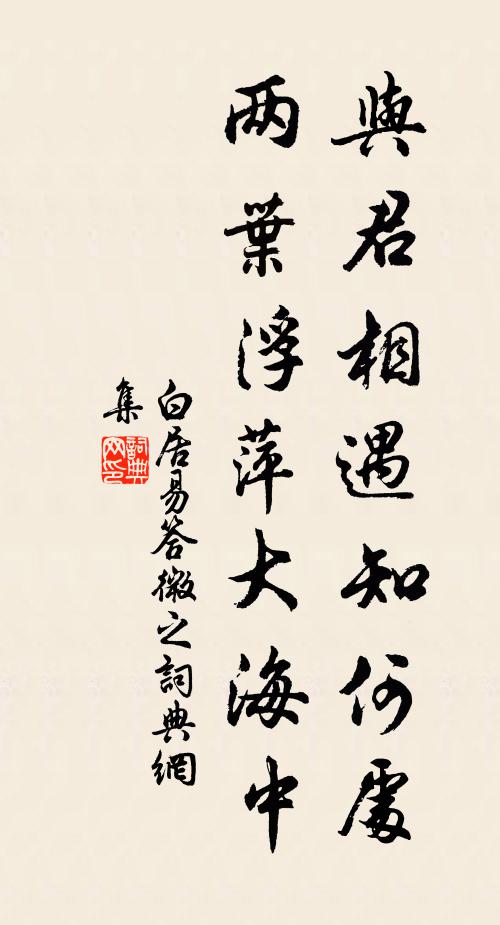 與君相遇知何處
兩葉浮萍大海中
白居易答微之詞典網
集
詞典
网印